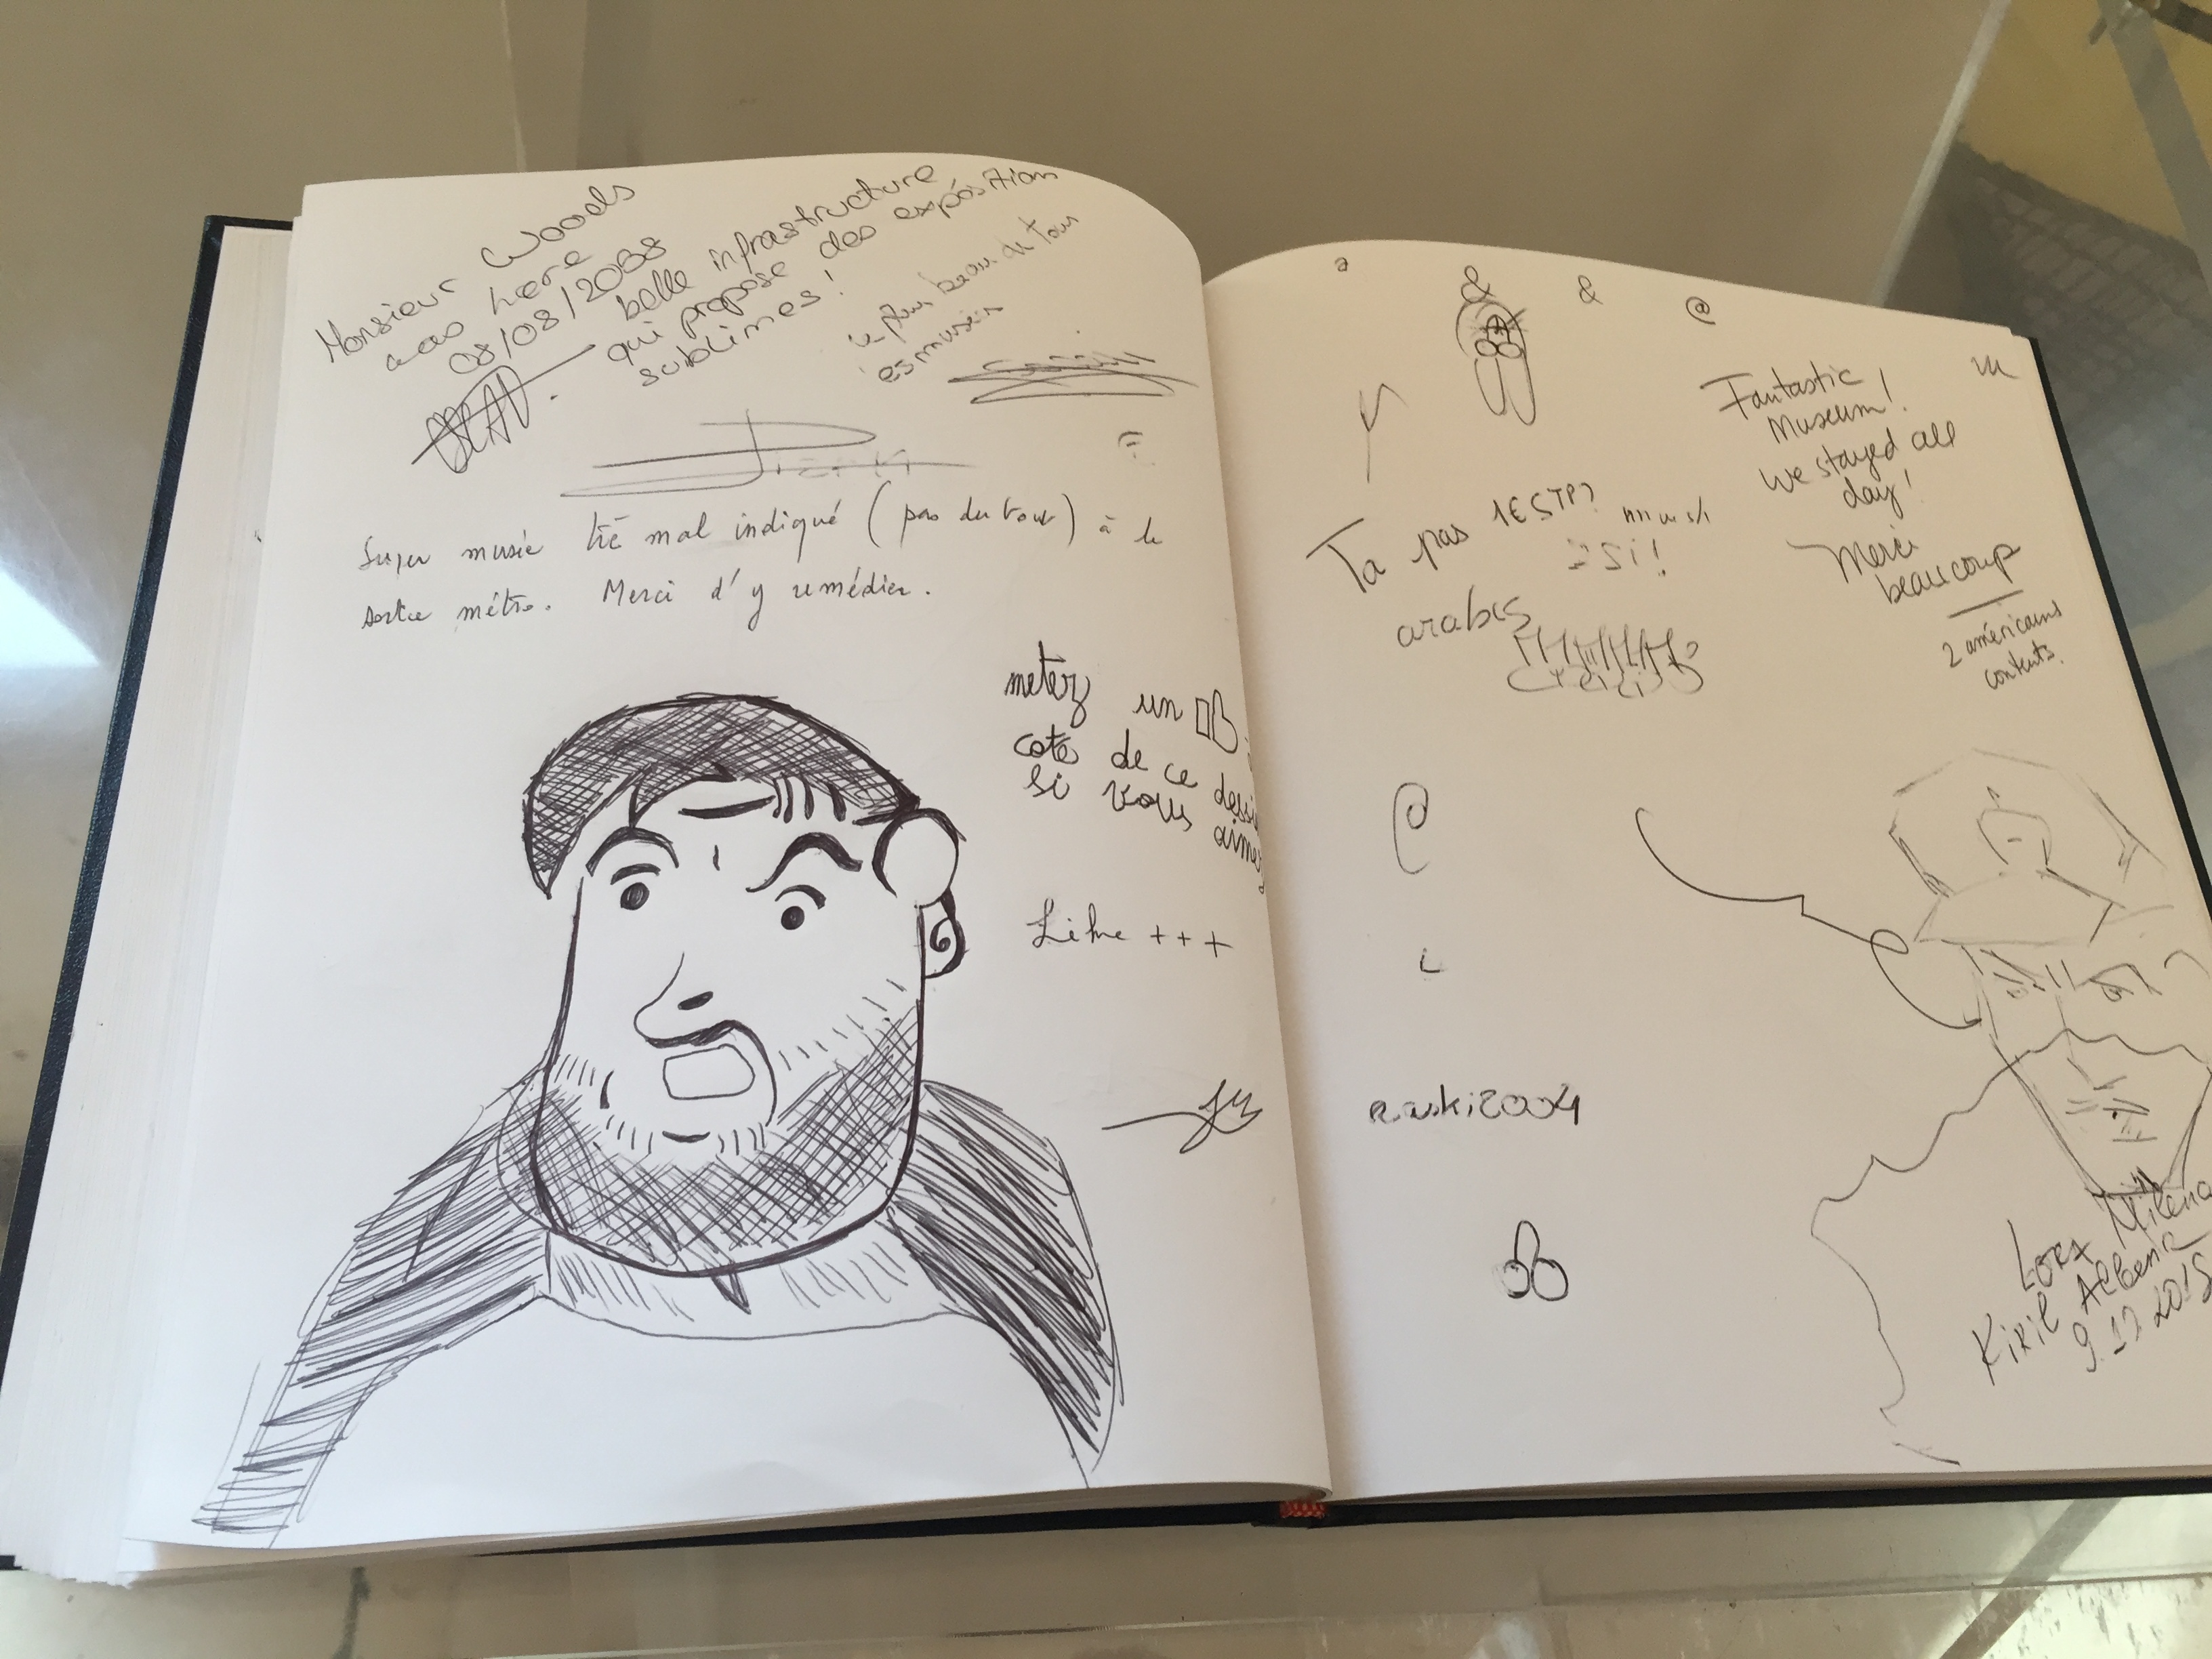 Monsieur Woods
was here
08/08/2088
belle infrastructure
qui propose des expósition
sublimes!
le plus beau de tous
les musées
Super musée trè mal indiqué (pas du tout) à la
sortie métro. Merci d'y remédier.
metez un
coté de ce dessin
si vous aimez
Like +++
a & & @
Fantastic
Museum!
we stayed all
day!
Merci
beaucoup
2 américains
contents.
Ta pas 1€ STP?
Si!
arabes
@
Milena
Lora
Kiril Albena